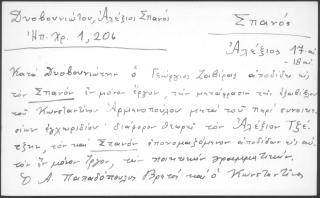 Δυοβουνιώτου, Αλέξιος Σπανός
Σπανός
Ηπ. Χρ. 1, 206
Αλέξιος 17 αἰ
- 18 αἰ
Κατὰ Δυοβουνιώτην ὁ Γεώργιος Ζαβίρας ἀποδίδων εἰς
τὸν Σπανὸν ἓν μόνον ἔργον, τὴν μετάφρασιν τῆς ἑξαβίβλου
τοῦ Κωνσταντίνου Ἁρμενοπούλου μετὰ τοῦ περὶ συνοικε-
σίων ἐγχειριδίου διάφορον θεωρεῖ τὸν Ἀλέξιον Τζέ-
τζην, τὸν καὶ Σπανὸν ἐπονομαζόμενον ἀποδίδων εἰς αὐ-
τὸν ἓν μόνον ἔργον, τὴν ποιητικὴν γραμματικήν.
Ὁ Α. Παπαδόπουλος Βρετὸς καὶ ὁ Κωνσταντῖνος